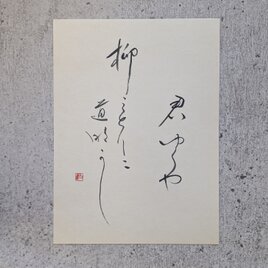 君ゆくや
柳みどりに
道